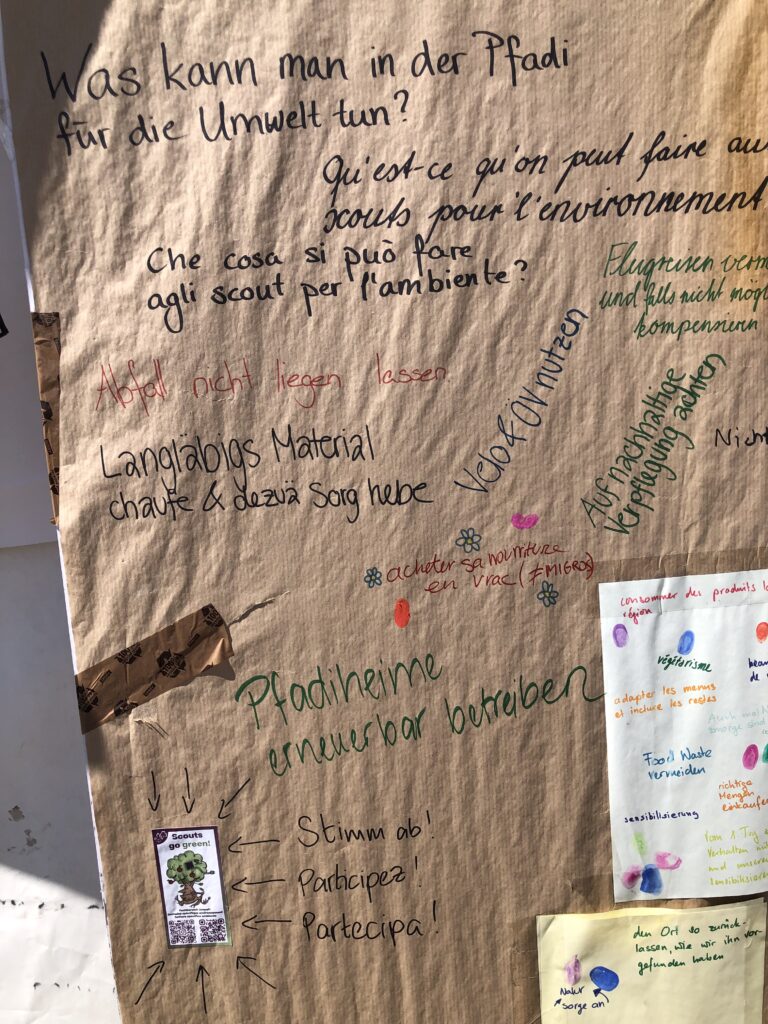 Was kann man in der Pfadi
für die Umwelt tun?
Qu'est-ce qu'on peut faire au
scouts pour l'environnement
Che cosa si può fare
agli scout per l'ambiente?
Flugreisen verm
und falls nicht mögl
kompensieren
Abfall nicht liegen lassen
Velo & ÖV nutzen
Auf nachhaltige
Verpflegung achten
Nicht
Langläbigs Material
chaufe & dezuä Sorg hebe
acheter sa nourriture
en vrac (≠MIGROS)
consommer des produits
région
végétarisme
de
adapter les menus
et inclure les restes
Food Waste
vermeiden
richtige
Mengen
einkaufen
sensibilisierung
Vom 1. Tag
Verhalten
und unseren
sensibilisieren
Pfadiheime
erneuerbar betreiben
Scouts
go green!
Stimm ab!
Participez!
Partecipa!
den Ort so zurück-
lassen, wie wir ihn vor-
gefunden haben
Natur
sorge an